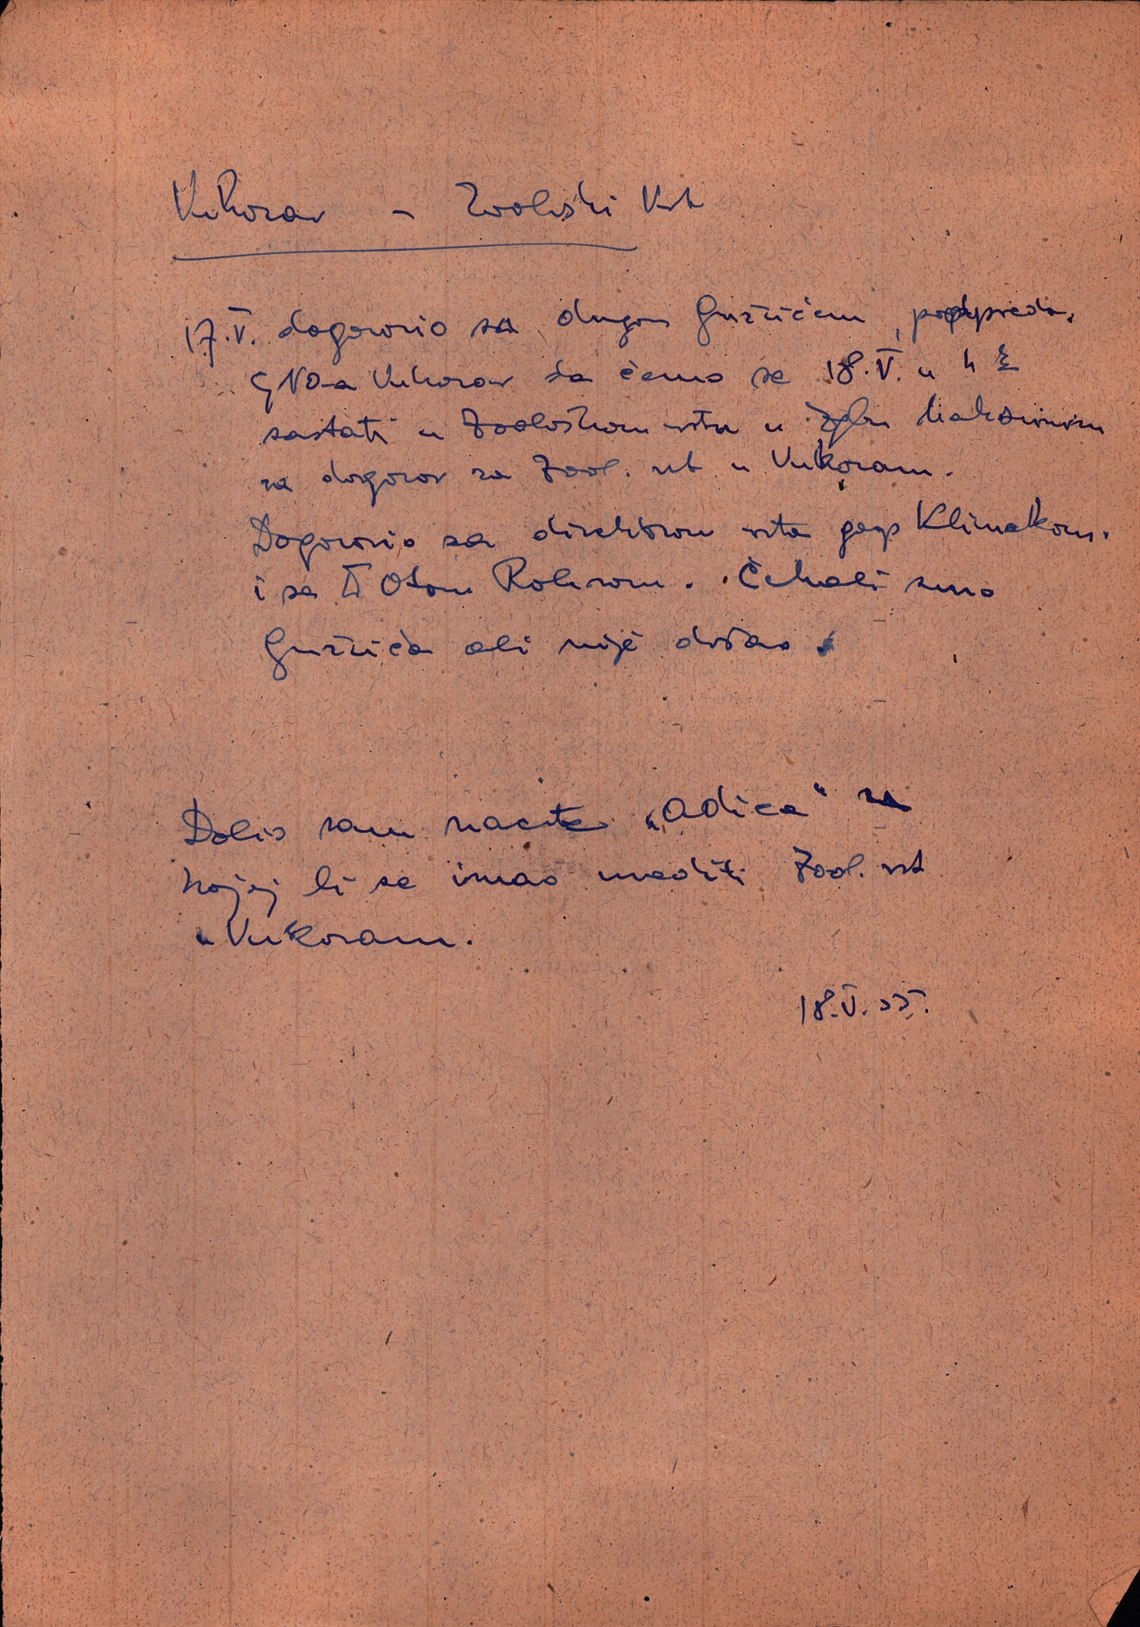 Vukovar - Zoološki Vrt
17.V. dogovorio sa drugom Gužićem, podpreds.
GNO-a Vukovar da ćemo se 18.V. u 4 h
sastati u Zoološkom vrtu u Zgbu Maksimiru
za dogovor za Zool. vrt u Vukovaru.
Dogovorio sa direktorom vrta Klimekom.
i sa Otom Rohrom. Čekali smo
Gužića ali nije došao.
Dobio sam nacrte "Adice" na
kojoj bi se imao urediti Zool. vrt
u Vukovaru.
18.V.55.